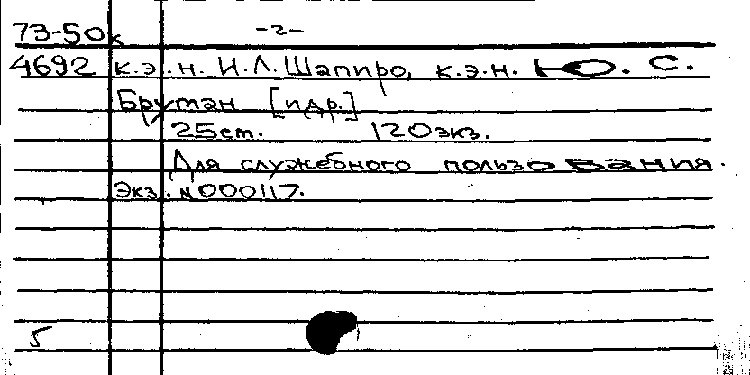 73-50к -2-
4692 к.э.н. И.Л.Шапиро, к.э.н. Ю. С.
Брутан [и др.]
25 ст. 120 экз.
Для служебного пользования.
Экз. № 000117.
5